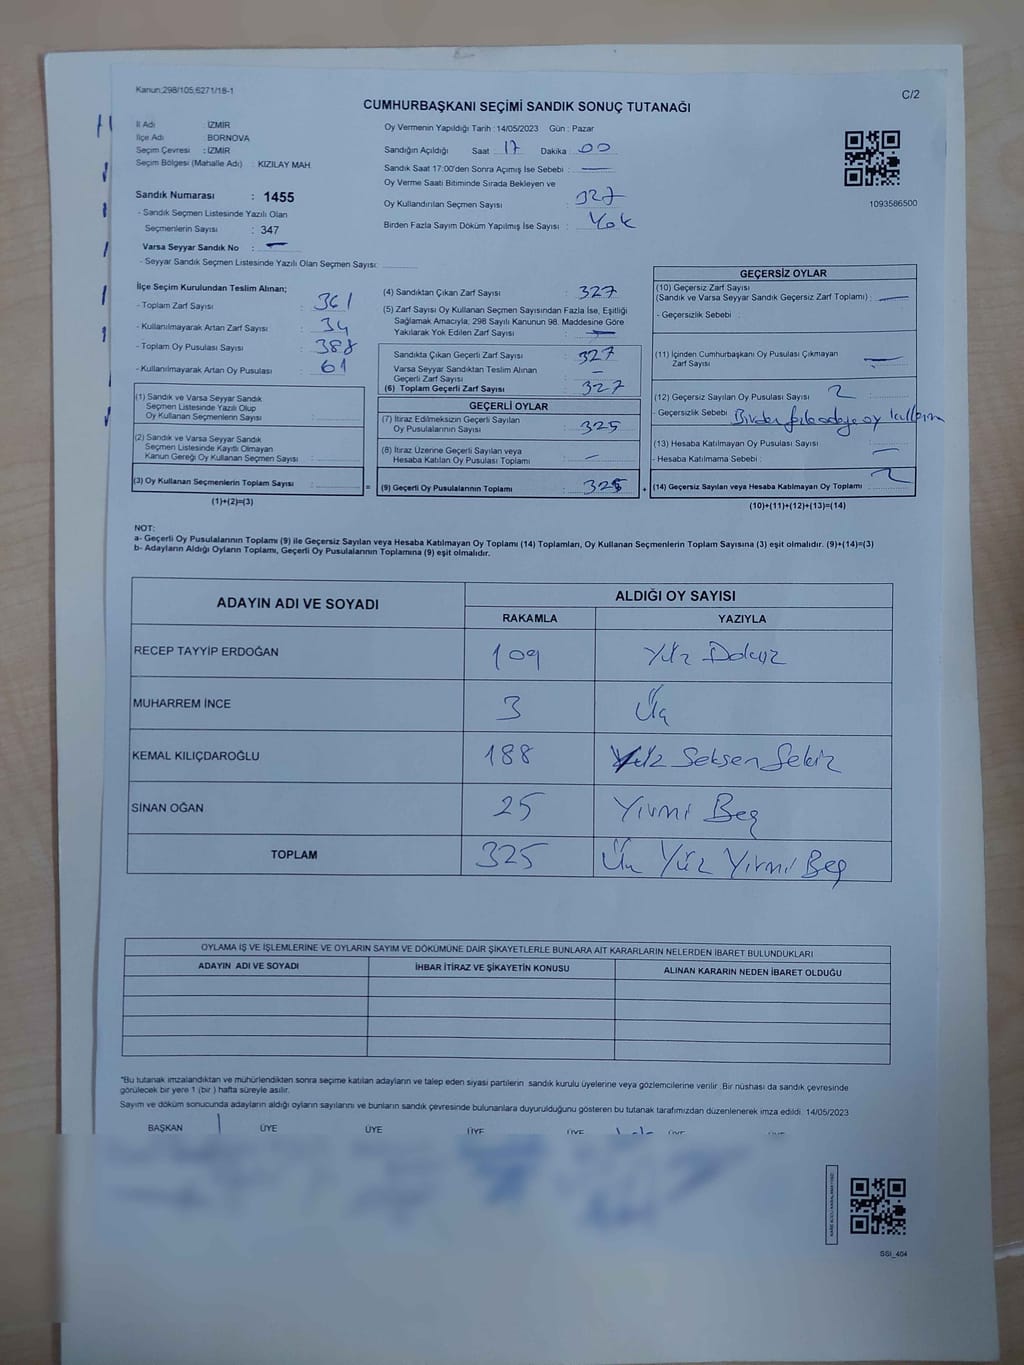 Kanun:298/105,6271/18-1
C/2
CUMHURBAŞKANI SEÇİMİ SANDIK SONUÇ TUTANAĞI
İl Adı : İZMİR
İlçe Adı : BORNOVA
Seçim Çevresi : İZMİR
Seçim Bölgesi (Mahalle Adı) : KIZILAY MAH
Sandık Numarası : 1455
- Sandık Seçmen Listesinde Yazılı Olan
Seçmenlerin Sayısı : 347
Varsa Seyyar Sandık No : —
- Seyyar Sandık Seçmen Listesinde Yazılı Olan Seçmen Sayısı:
Oy Vermenin Yapıldığı Tarih : 14/05/2023 Gün : Pazar
Sandığın Açıldığı Saat : 17 Dakika : 00
Sandık Saat 17:00'den Sonra Açımış İse Sebebi : —
Oy Verme Saati Bitiminde Sırada Bekleyen ve
Oy Kullandırılan Seçmen Sayısı : 327
Birden Fazla Sayım Döküm Yapılmış İse Sayısı : Yok
1093586500
İlçe Seçim Kurulundan Teslim Alınan;
- Toplam Zarf Sayısı : 361
- Kullanılmayarak Artan Zarf Sayısı : 34
- Toplam Oy Pusulası Sayısı : 388
- Kullanılmayarak Artan Oy Pusulası : 61
(1) Sandık ve Varsa Seyyar Sandık
Seçmen Listesinde Yazılı Olup
Oy Kullanan Seçmenlerin Sayısı :
(2) Sandık ve Varsa Seyyar Sandık
Seçmen Listesinde Kayıtlı Olmayan
Kanun Gereği Oy Kullanan Seçmen Sayısı :
(3) Oy Kullanan Seçmenlerin Toplam Sayısı : =
(1)+(2)=(3)
(4) Sandıktan Çıkan Zarf Sayısı : 327
(5) Zarf Sayısı Oy Kullanan Seçmen Sayısından Fazla İse, Eşitliği
Sağlamak Amacıyla, 298 Sayılı Kanunun 98. Maddesine Göre
Yakılarak Yok Edilen Zarf Sayısı : —
Sandıkta Çıkan Geçerli Zarf Sayısı : 327
Varsa Seyyar Sandıktan Teslim Alınan
Geçerli Zarf Sayısı : —
(6) Toplam Geçerli Zarf Sayısı : 327
GEÇERLİ OYLAR
(7) İtiraz Edilmeksizin Geçerli Sayılan
Oy Pusulalarının Sayısı : 325
(8) İtiraz Üzerine Geçerli Sayılan veya
Hesaba Katılan Oy Pusulası Toplamı : —
(9) Geçerli Oy Pusulalarının Toplamı : 325 +
GEÇERSİZ OYLAR
(10) Geçersiz Zarf Sayısı
(Sandık ve Varsa Seyyar Sandık Geçersiz Zarf Toplamı) : —
- Geçersizlik Sebebi :
(11) İçinden Cumhurbaşkanı Oy Pusulası Çıkmayan
Zarf Sayısı : —
(12) Geçersiz Sayılan Oy Pusulası Sayısı : 2
- Geçersizlik Sebebi : Birden fazla adaya oy
(13) Hesaba Katılmayan Oy Pusulası Sayısı :
- Hesaba Katılmama Sebebi : —
(14) Geçersiz Sayılan veya Hesaba Katılmayan Oy Toplamı : 2
(10)+(11)+(12)+(13)=(14)
NOT:
a- Geçerli Oy Pusulalarının Toplamı (9) ile Geçersiz Sayılan veya Hesaba Katılmayan Oy Toplamı (14) Toplamları, Oy Kullanan Seçmenlerin Toplam Sayısına (3) eşit olmalıdır. (9)+(14)=(3)
b- Adayların Aldığı Oyların Toplamı, Geçerli Oy Pusulalarının Toplamına (9) eşit olmalıdır.
ADAYIN ADI VE SOYADI ALDIĞI OY SAYISI
RAKAMLA YAZIYLA
RECEP TAYYİP ERDOĞAN 109 Yüz Dokuz
MUHARREM İNCE 3 Üç
KEMAL KILIÇDAROĞLU 188 Yüz Seksen Sekiz
SİNAN OĞAN 25 Yirmi Beş
TOPLAM 325 Üç Yüz Yirmi Beş
OYLAMA İŞ VE İŞLEMLERİNE VE OYLARIN SAYIM VE DÖKÜMÜNE DAİR ŞİKAYETLERLE BUNLARA AİT KARARLARIN NELERDEN İBARET BULUNDUKLARI
ADAYIN ADI VE SOYADI İHBAR İTİRAZ VE ŞİKAYETİN KONUSU ALINAN KARARIN NEDEN İBARET OLDUĞU
*Bu tutanak imzalandıktan ve mühürlendikten sonra seçime katılan adayların ve talep eden siyasi partilerin sandık kurulu üyelerine veya gözlemcilerine verilir. Bir nüshası da sandık çevresinde
görülecek bir yere 1 (bir ) hafta süreyle asılır.
Sayım ve döküm sonucunda adayların aldığı oyların sayılarını ve bunların sandık çevresinde bulunanlara duyurulduğunu gösteren bu tutanak tarafımızdan düzenlenerek imza edildi. 14/05/2023
BAŞKAN ÜYE ÜYE ÜYE ÜYE ÜYE
SSI_404